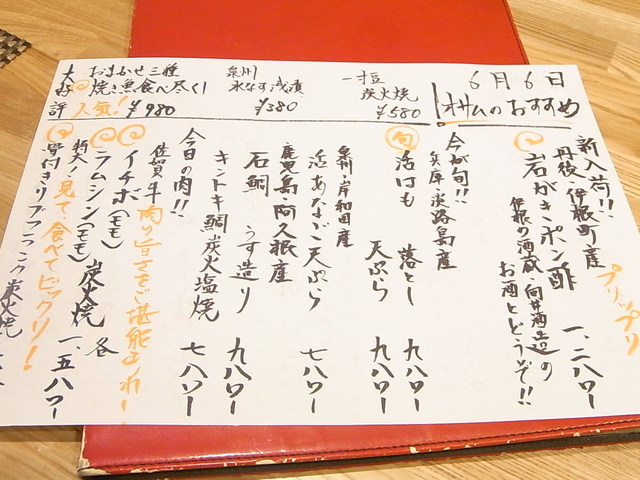 6月6日
オサムのおすすめ
一寸豆
炭火焼
¥580
泉州
水なす浅漬
¥380
大好評
おまかせ三種
焼き魚食べ尽くし
人気！ ¥980
新入荷!!
プリップリ
丹後・伊根町産
岩がきポン酢 一、二八〇ー
伊根の酒蔵 向井酒造の
お酒とどうぞ!!
今が旬!!
兵庫・淡路島産
旬 活はも 落とし 九八〇ー
天ぷら 九八〇ー
泉州・岸和田産
活あなご天ぷら 七八〇ー
鹿児島・阿久根産
石鯛 うす造り 九八〇ー
キントキ鯛 炭火塩焼 七八〇ー
今日の肉!!
佐賀牛 肉の旨さをご堪能あれー
イチボ(モモ)
ラムシン(モモ) 炭火焼 各 一、五八〇ー
特大！見て、食べてビックリ！
骨付きリブフランク炭火焼